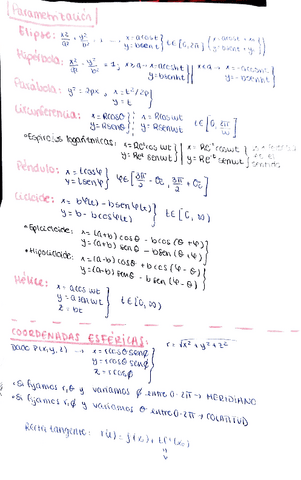 Parametrización
Elipse: x²/a² + y²/b² x = a cos t y = b sen t } t ∈ [0, 2π]
Hipérbola: x²/a² - y²/b² = 1; x>a → x = a cosh t y = b senh t } x<a → x = -a cosh t y = -b senh t }
Parábola: y² = 2px, x = t²/2p y = t }
Circunferencia: x = R cos θ y = R sen θ }; x = R cos wt y = R sen wt t ∈ [0, 2π/w]
• Espirales logarítmicas: x = Re^t cos wt y = Re^t sen wt } x = Re^-t cos wt y = Re^-t sen wt } sentido
Péndulo: x = l cos φ y = l sen φ } φ ∈ [3π/2 - , 3π/2 + ]
Cicloide: x = bφ(t) - b sen φ(t) y = b - b cos φ(t) } t ∈ [0, ∞)
• Epicicloide: x = (a+b) cos θ - b cos (θ + φ) y = (a+b) sen θ - b sen (θ + φ) }
• Hipocicloide: x = (a-b) cos θ + b cos (φ - θ) y = (a-b) sen θ - b sen (φ - θ) }
Hélice: x = a cos wt y = a sen wt z = bt } t ∈ [0, ∞)
COORDENADAS ESFÉRICAS: r = √x² + y² + z²
Dado P(x, y, z) → x = r cos θ sen φ y = r sen θ sen φ z = r cos φ }
• Si fijamos r, θ y variamos φ entre 0-2π → MERIDIANO
• Si fijamos r, φ y variamos θ entre 0-2π → COLATITUD
Recta tangente: